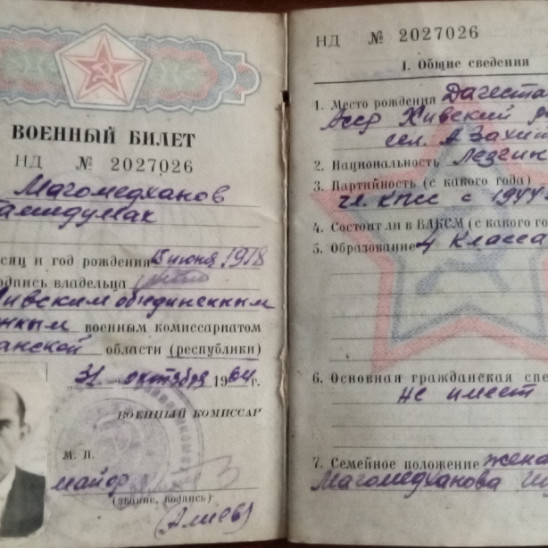 ВОЕННЫЙ БИЛЕТ
НД № 2027026
Магомедханов
сяц и год рождения 15 июня 1918
одпись владельца
объединенным
военным комиссариатом
анской области (республики)
31 октября 1964 г.
ВОЕННЫЙ КОМИССАР
М. П.
майор
(звание, подпись)
(Алиев)
НД № 2027026
1. Общие сведения
1. Место рождения Дагестан
Асср Хивский
сел. А Захит
2. Национальность Лезгин
3. Партийность (с какого года)
чл. КПСС с 1944
4. Состоит ли в ВЛКСМ (с какого го
5. Образование 4 класса
6. Основная гражданская спе
не имеет
7. Семейное положение жена
Магомедханова